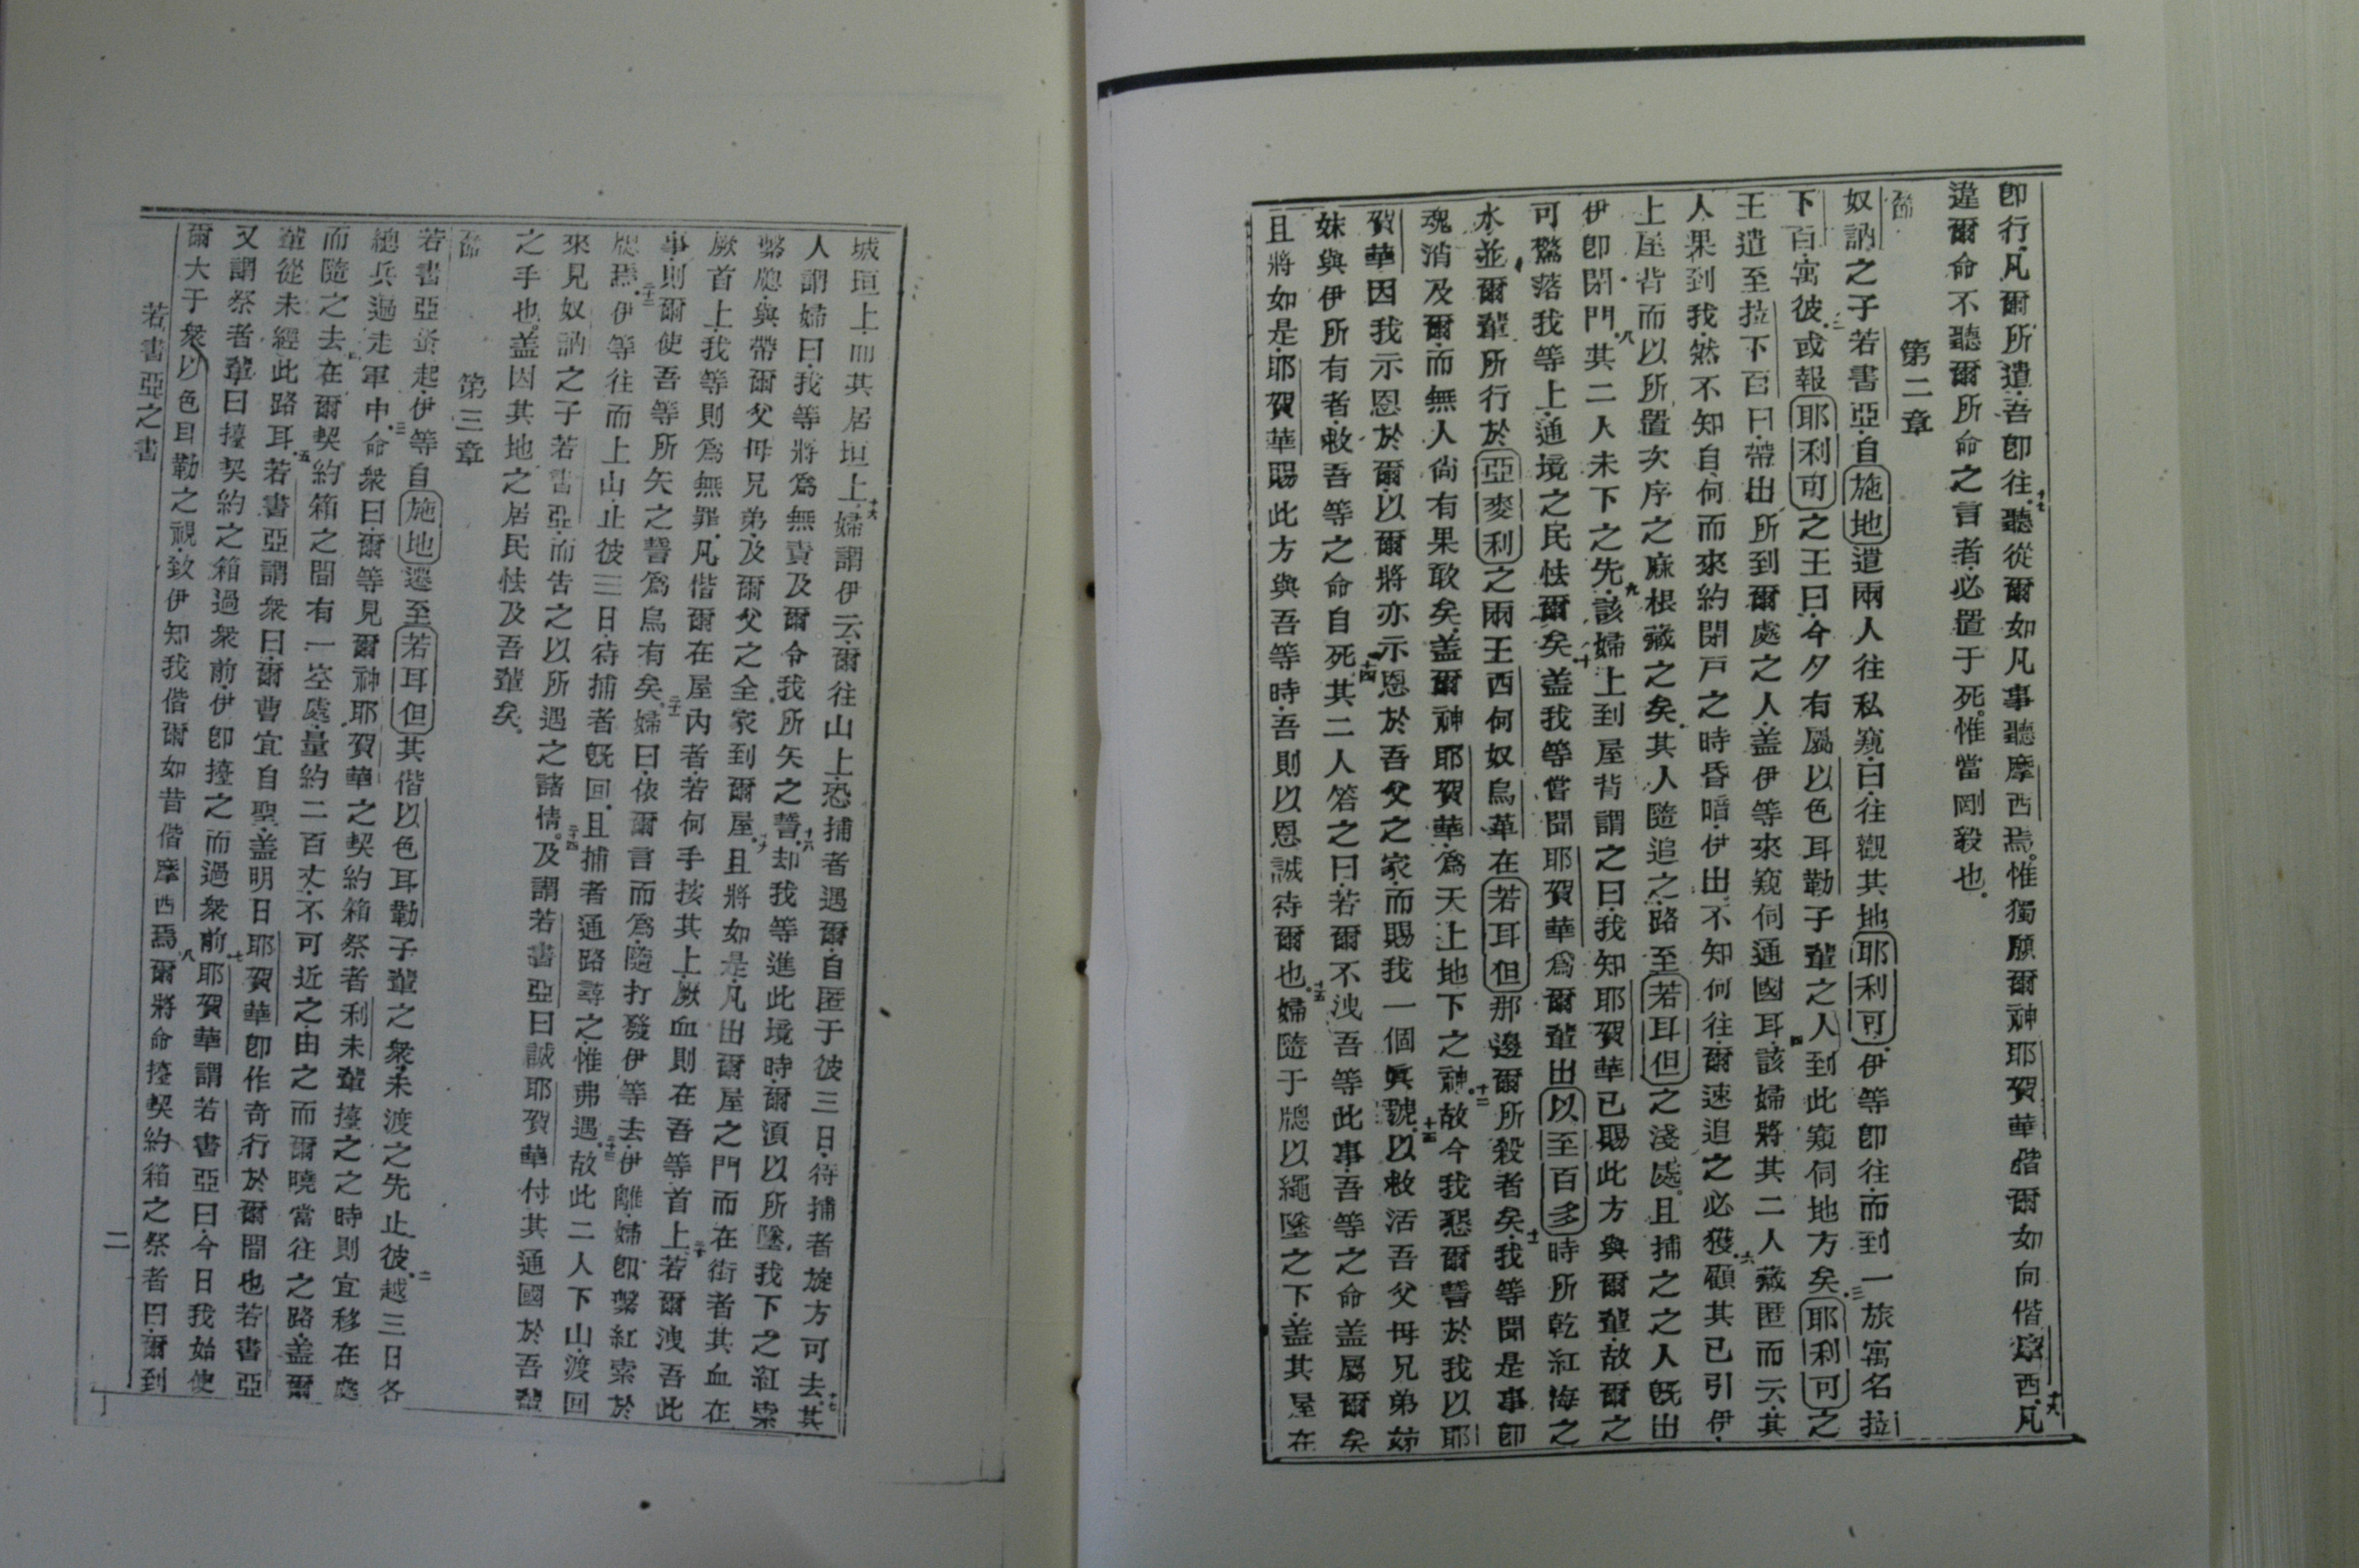 即行、凡爾所遣、吾即往、十七聽從爾如凡事聽摩西焉。惟獨願爾神耶賀華偕爾如向偕摩西、十八凡
違爾命不聽爾所命之言者、必置于死。惟當剛毅也。
節 第二章
奴訥之子若書亞、自施地遣兩人往私窺、曰、往觀其地耶利可、伊等即往、而到一旅寓名拉
下百、寓彼、二或報耶利可之王曰、今夕有屬以色耳勒子輩之人到此窺伺地方矣、三耶利可之
王遣至拉下百曰、帶出所到爾處之人、盖伊等來窺伺通國耳、四該婦將其二人藏匿而云、其
人果到我、然不知自何而來約閉戸之時昏暗、伊出、不知何往、爾速追之必獲、六顧其已引伊、
上屋背而以所置次序之麻根藏之矣。其人隨追之、路至若耳但之淺處。且捕之之人旣出
伊即閉門。八其二人未下之先、九該婦上到屋背謂之曰、我知耶賀華已賜此方與爾輩、故爾之
可驚落我等上、通境之民怯爾矣、十盖我等嘗聞耶賀華爲爾輩出以至百多時所乾紅海之
水、並爾輩所行於亞麥利之兩王西何奴烏革在若耳但那邊爾所殺者矣、十一我等聞是事即
魂消及爾、而無人尚有果敢矣、盖爾神耶賀華、爲天上地下之神。十二故今我懇爾誓於我以耶
賀華因我示恩於爾、以爾將亦示恩於吾父之家、而賜我一個眞號、十三以救活吾父母兄弟姊
妹與伊所有者、救吾等之命自死、十四其二人答之曰、若爾不洩吾等此事、吾等之命盖屬爾矣
且將如是、耶賀華賜此方與吾等時、吾則以恩誠待爾也。十五婦隨于牕以繩墜之下、盖其屋在
城垣上、而其居垣上、十六婦謂伊云、爾往山上、恐捕者遇爾、自匿于彼三日、待捕者旋方可去、十七其
人謂婦曰、我等將爲無責及爾令我所矢之誓、十八却我等進此境時、爾須以所墜、我下之紅索
繫牕、與帶爾父母兄弟、及爾父之全家到爾屋。十九且將如是、凡出爾屋之門而在街者其血在
厥首上、我等則爲無罪、凡偕爾在屋內者、若何手按其上、厥血則在吾等首上、二十若爾洩吾此
事、則爾使吾等所矢之誓爲烏有矣。二十一婦曰、依爾言而爲、隨打發伊等去、伊離、婦即繫紅索於
牕焉。二十二伊等往而上山、止彼三日、待捕者旣回、且捕者通路尋之、惟弗遇。二十三故此二人下山、渡回
來見奴訥之子若書亞、而告之以所遇之諸情。二十四及謂若書亞曰誠耶賀華付其通國於吾輩
之手也。盖因其地之居民怯及吾輩矣。
節 第三章
若書亞蚤起、伊等自施地遷至若耳但其偕以色耳勒子輩之衆、未渡之先止彼。二越三日各
總兵過走軍中、三命衆曰、爾等見爾神耶賀華之契約箱祭者利未輩擡之之時則宜移在處
而隨之去、四在爾契約箱之間有一空處、量約二百丈、不可近之、由之而爾曉當往之路、盖爾
輩從未經此路耳。五若書亞謂衆曰、爾曹宜自聖、盖明日耶賀華即作奇行於爾間也若書亞
又謂祭者輩曰擡契約之箱過衆前、伊即擡之而過衆前、七耶賀華謂若書亞曰、今日我始使
爾大于衆以色耳勒之視、致伊知我偕爾如昔偕摩西焉、八爾將命擡契約箱之祭者曰、爾到
若書亞之書 二